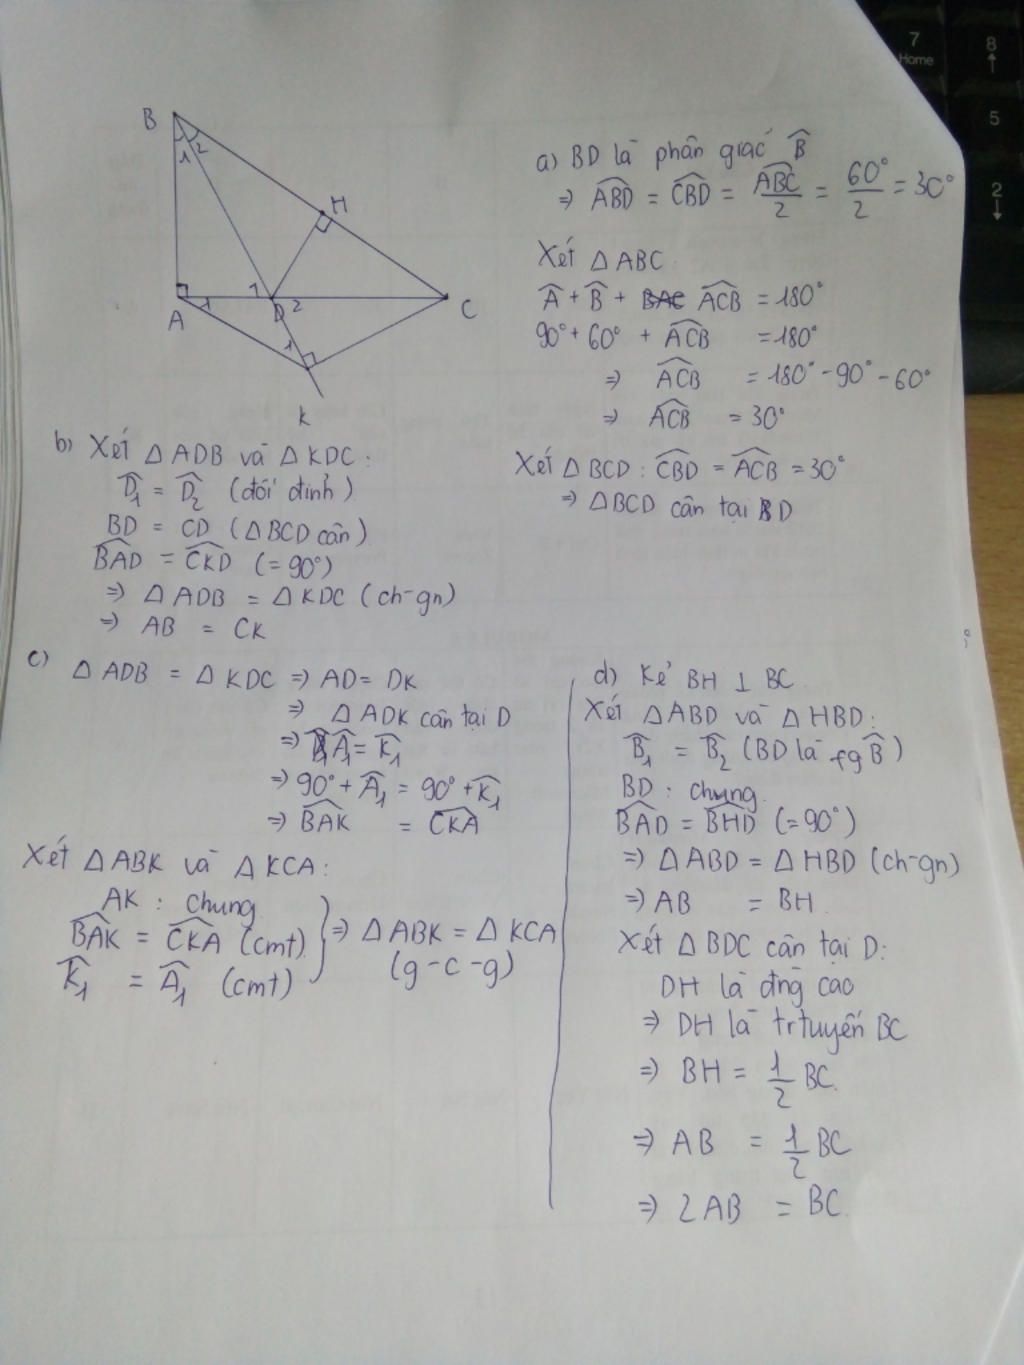 B
1 2
H
A
1
1
D
2
C
1
K
a) BD là phân giác B̂
⇒ ABD̂ = CBD̂ = ABĈ/2 = 60°/2 = 30°
Xét △ABC
Â + B̂ + BAC ACB̂ = 180°
90° + 60° + ACB̂ = 180°
⇒ ACB̂ = 180° - 90° - 60°
⇒ ACB̂ = 30°
Xét △BCD : CBD̂ = ACB̂ = 30°
⇒ △BCD cân tại D
b) Xét △ADB và △KDC :
D̂₁ = D̂₂ (đối đỉnh)
BD = CD (△BCD cân)
BAD̂ = CKD̂ (= 90°)
⇒ △ADB = △KDC (ch-gn)
⇒ AB = CK
c) △ADB = △KDC ⇒ AD = DK
⇒ △ADK cân tại D
⇒ Â₁ = K̂₁
⇒ 90° + Â₁ = 90° + K̂₁
⇒ BAK̂ = CKÂ
Xét △ABK và △KCA :
AK : chung
BAK̂ = CKÂ (cmt)
K̂₁ = Â₁ (cmt)
⇒ △ABK = △KCA
(g-c-g)
d) Kẻ BH ⊥ BC
Xét △ABD và △HBD :
B̂₁ = B̂₂ (BD là fg B̂)
BD : chung
BAD̂ = BHD̂ (= 90°)
⇒ △ABD = △HBD (ch-gn)
⇒ AB = BH
Xét △BDC cân tại D :
DH là đng cao
⇒ DH là trtuyến BC
⇒ BH = 1/2 BC
⇒ AB = 1/2 BC
⇒ 2AB = BC
7
Home
8
↑
5
2
↓